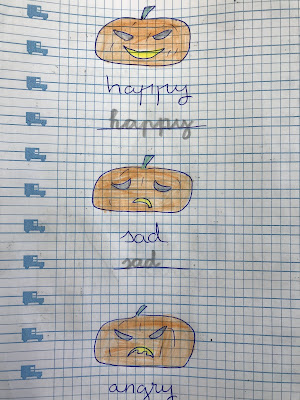 happy
happy
sad
sad
angry